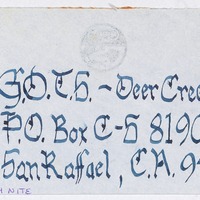 G.D.T.S. - Deer Cree
P.O. Box C-S 8190
San Raffael, C.A. 9
H NITE